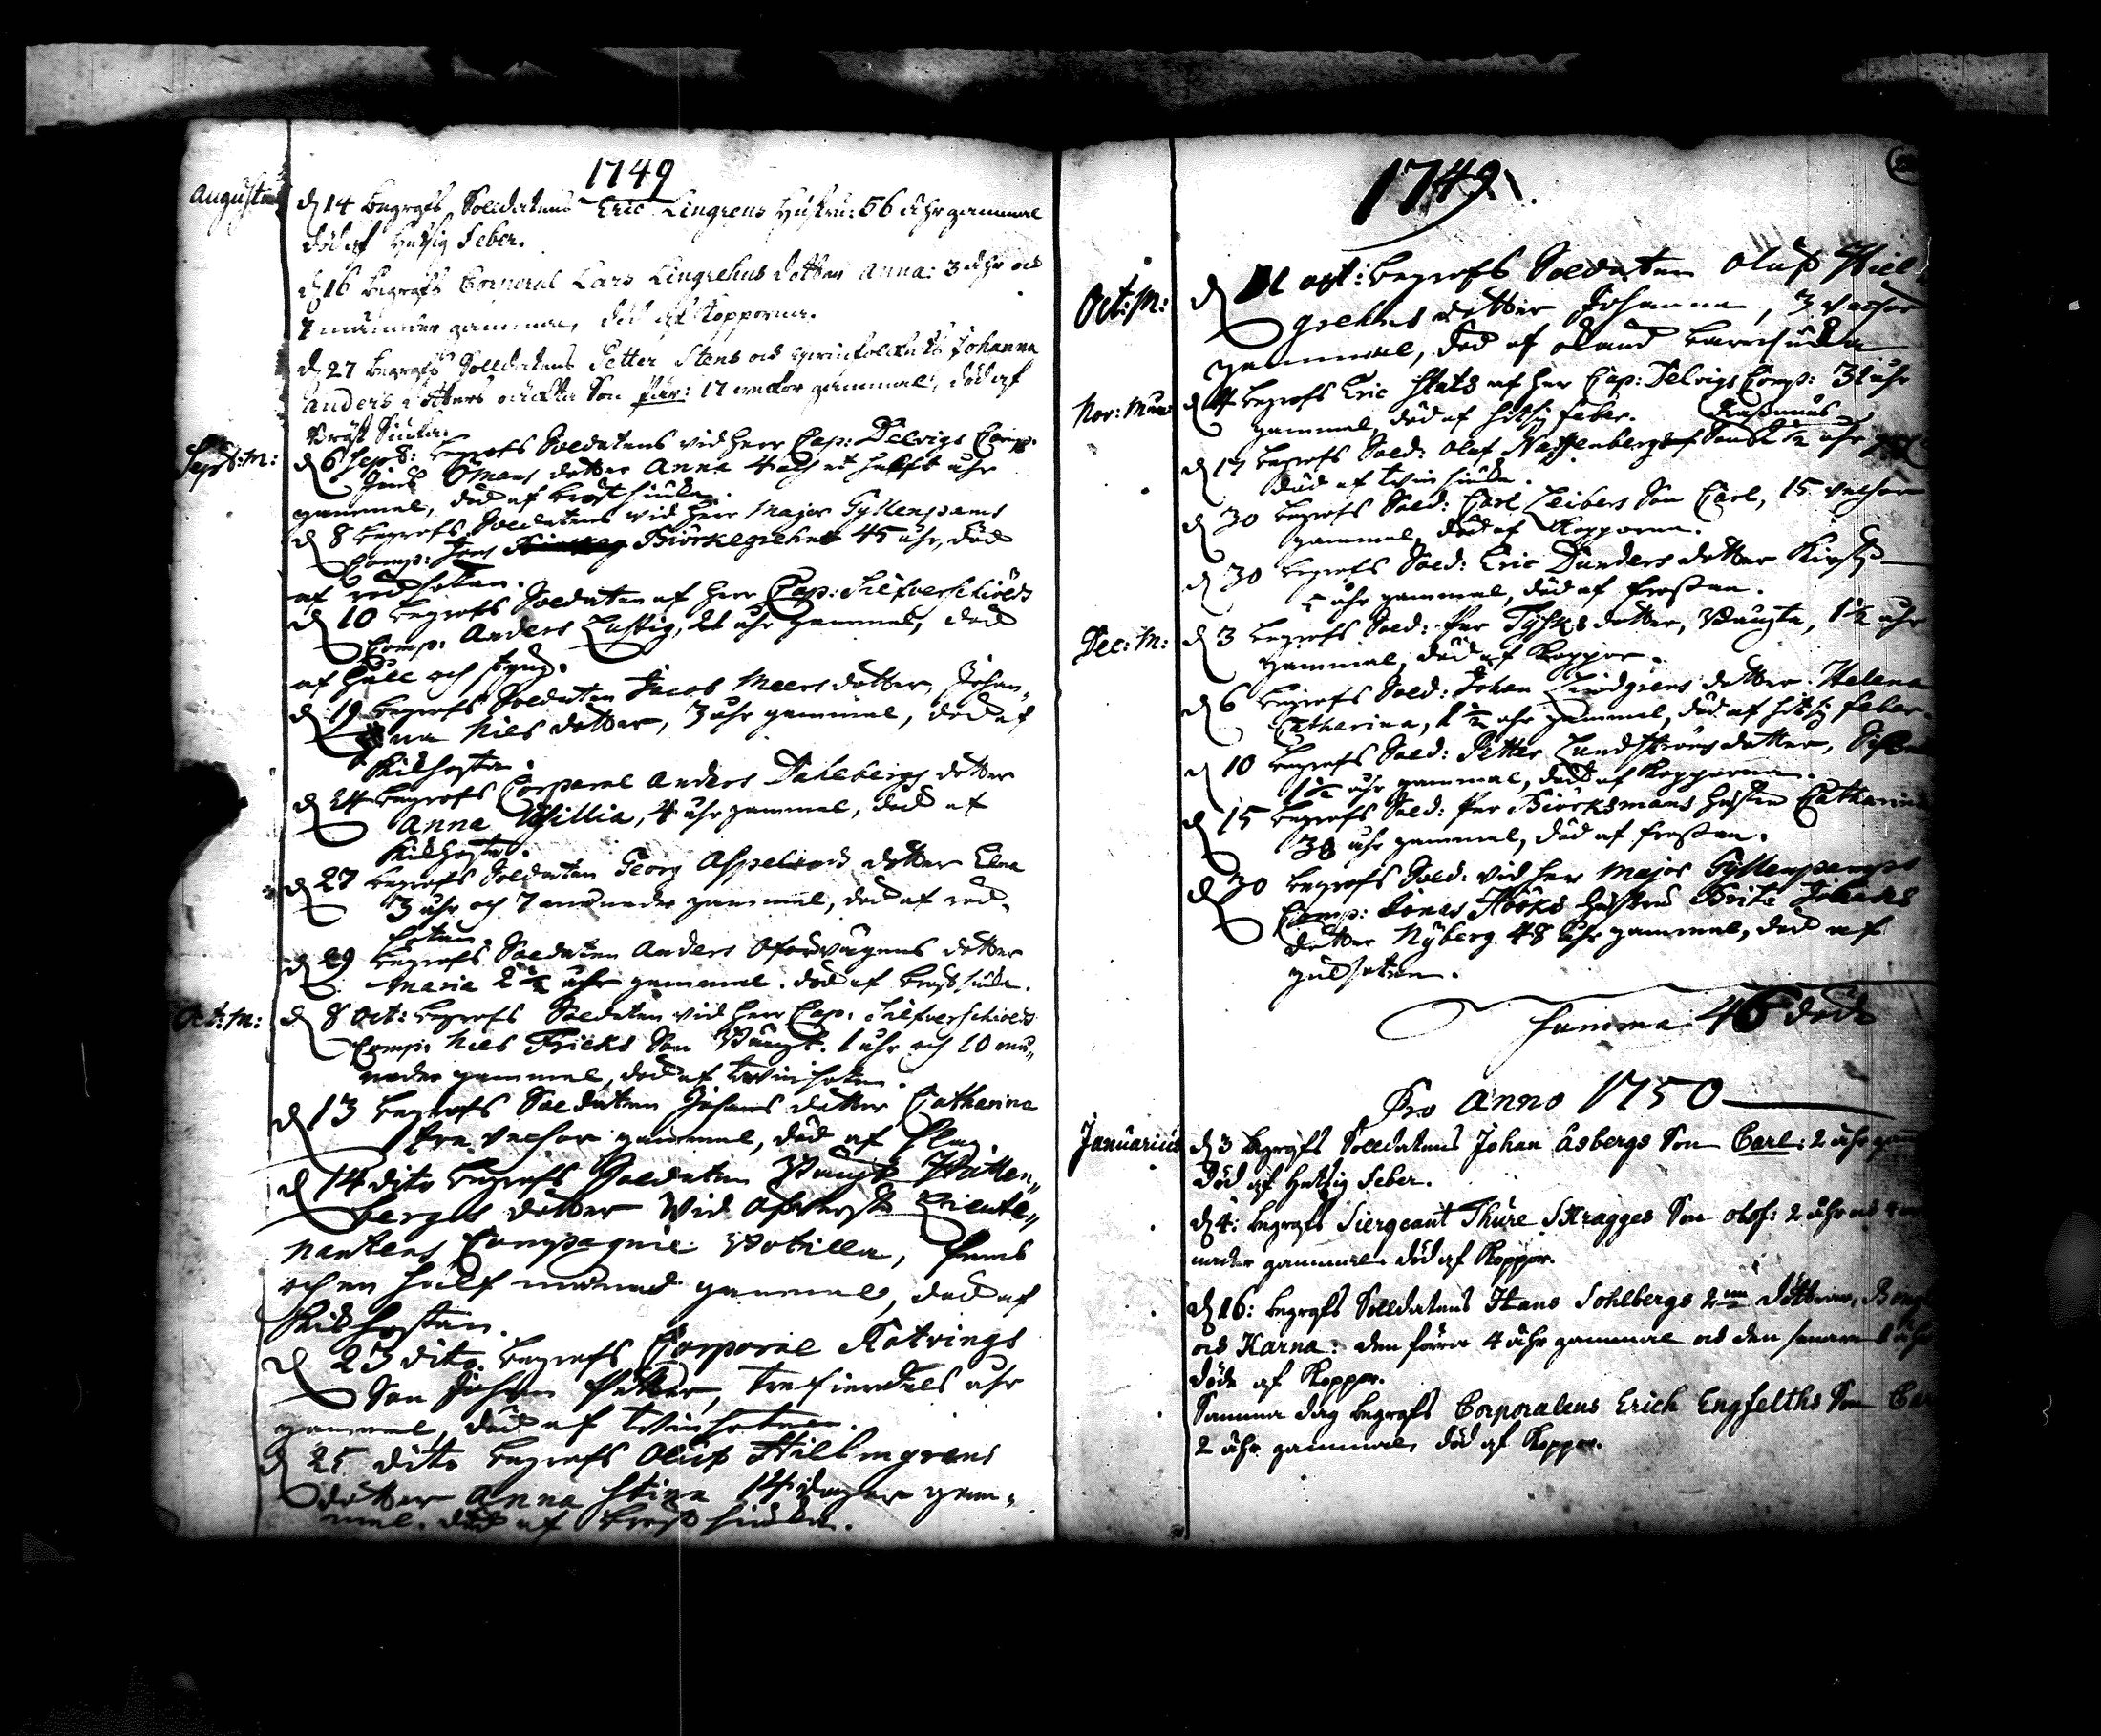 1749
Augusti
d 14 begrofs Solldatens Eric Lingrens Hustru: 56 åhr gammal
död af Hetsig Feber.
d 16 begrofs Corporal Lars Lingrehns dotter Anna: 3 åhr och
7 månader gammal, död af Kopporna.
d 27 begrofs Solldatens Petter Stens och Johanna
Anders dotters oächta Son Pär: 17 weckor gammal, död af
Bröst Siuka.
Sept: M:
d 6 Sept: begrofs Soldatens vid Herr Cap: Delvigs Comp:
Ömans dotter Anna 4 och et halft åhr
gammal, död af bröstsiuka.
d 8 begrofs Soldatens vid Herr Major Gyllenspans
Comp: Jöns Biörkegrehn 45 åhr, död
af rödsoten.
d 10 begrofs Soldaten af Herr Cap: Silfverskiölds
Comp: Anders Lustig, 21 åhr gammal, död
af håll och styng.
d 19 begrofs Soldaten Jacob Meers dotter, Johan-
na Niels dotter, 3 åhr gammal, död af
Kikhosta.
d 24 begrofs Corporal Anders Dahlbergs dotter
Anna, 4 åhr gammal, död af
Kikhosta.
d 27 begrofs Soldaten Georg dotter Elna
3 åhr och 7 månader gammal, död af röd-
sotan.
d 29 begrofs Soldaten Anders Oförvägens dotter
Maria 2 1/2 åhr gammal. död af bröstsiuka.
Oct: M:
d 8 Oct: begrofs Soldaten vid Herr Cap: Silfverschiolds
Comp: Niels Fricks Son Bängt. 1 åhr och 10 må-
nader gammal, död af twinsoten.
d 13 begrofs Soldaten Johans dotter Catharina
tre veckor gammal, död af slag.
d 14 dito begrofs Soldaten Bängt Hätten-
bergs dotter vid Öfwerste Lieute-
nantens Compagnie Botilla, fem
och en half månad gammal, död af
Kikhostan.
d 23 dito. begrofs Corporal Katrings
Son Johan Petter, tre fierdels åhr
gammal, död af twinsoten.
d 25 dito begrofs Oluf Hillmgrens
dotter Anna Stina 14 dagar gam-
mal. död af bröstsiuka.
1749.
Oct: M:
d begrofs Soldaten Oluf Hiel-
grehns dotter Johanna, 3 veckor
gammal, död af okänd barnsiuka
Nov: Mån
d 4 begrofs Eric Stats af Herr Cap: Delvigs Comp: 31 åhr
gammal, död af hitsig feber.
d 17 begrofs Sold: Oluf Son Rasmus 1/2 åhr
död af twinsiuka.
d 30 begrofs Sold: Carl Leibers Son Carl, 15 veckor
gammal, död af Kopporna.
d 30 begrofs Sold: Eric Dunders dotter Kirst
5 åhr gammal, död af frossan.
Dec: M:
d 3 begrofs Sold: Per Tysks dotter, Bängta, 1 1/2 åhr
gammal, död af Koppor.
d 6 begrofs Sold: Johan Lindgrens dotter Helena
Catharina, 1 1/2 åhr gammal, död af hitsig feber.
d 10 begrofs Sold: Petter Lundströms dotter,
1 1/2 åhr gammal, död af Kopporna.
d 15 begrofs Sold: Per Biörksmans hustru Catharina
38 åhr gammal, död af frossan.
d 30 begrofs Sold: vid Herr Major Gyllenspangs
Comp: Jonas Hööks hustru Brita
dotter Nÿberg 48 åhr gammal, död af
gulsoten.
Summa 46 döde
Pro Anno 1750
Januarius
d 3 begrofs Solldatens Johan Åsbergs Son Carl: 2 åhr
död af Hetsig Feber.
d 4: begrofs Siergeant Thure Skragges Son Olof: 2 åhr och
nader gammal död af Koppor.
d 16: begrofs Solldatens Hans Sohlbergs 2ne döttrar,
och Karna: den förra 4 åhr gammal och den senare 1 åhr
döde af Koppor.
Samma dag begrofs Corporalens Erich Engfelths Son
2 åhr gammal, död af Koppor.